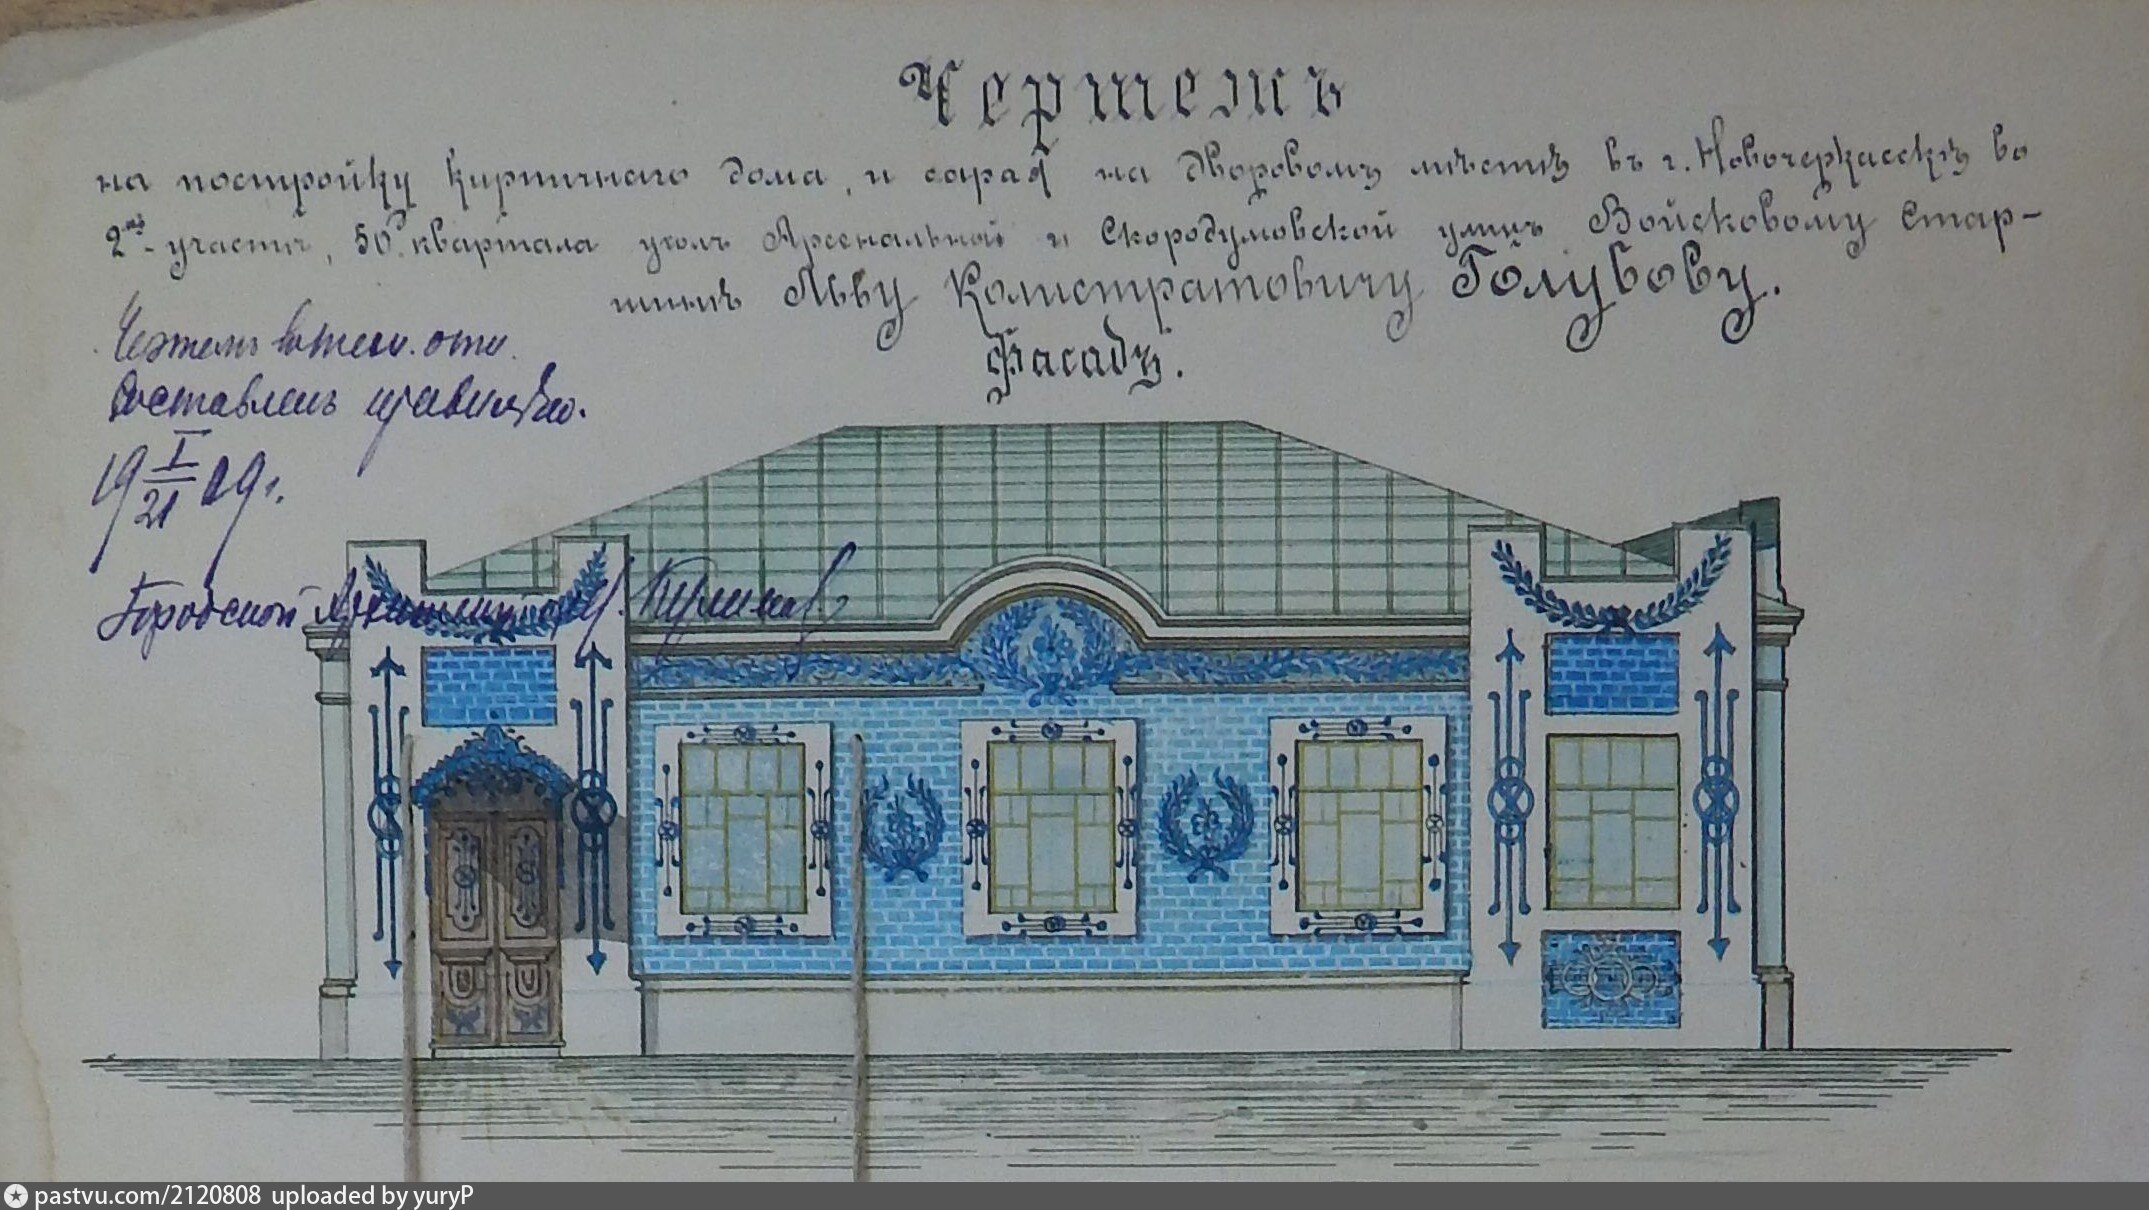 Чертежъ
на постройку кирпичнаго дома, и сарая на дворовомъ мѣстѣ въ г. Новочеркасскѣ во
2мъ участкѣ, 50го квартала уголъ Арсенальной и Скородумовской улицъ Войсковому Стар-
шинѣ Льву Калистратовичу Голубову.
Фасадъ.
Чертежъ въ техн. отн.
составленъ правильно.
19 I/21 09 г.
Городской Архитекторъ
pastvu.com/2120808 uploaded by yuryP